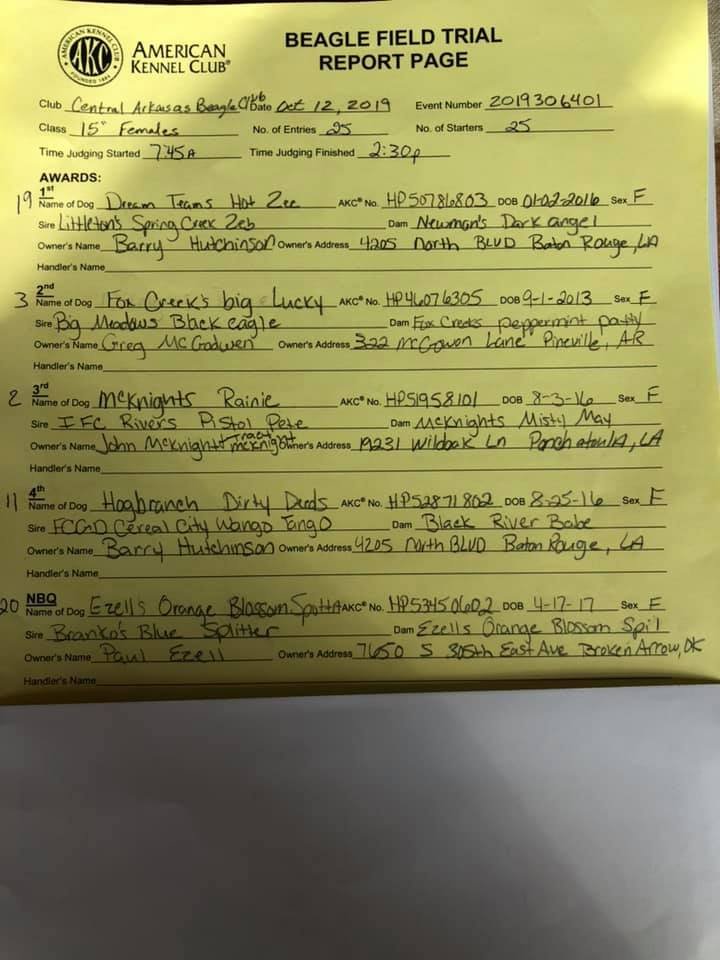 AMERICAN KENNEL CLUB
AKC
FOUNDED 1884
AMERICAN
KENNEL CLUB®
BEAGLE FIELD TRIAL
REPORT PAGE
Club Central Arkasas Beagle Club Date Oct 12, 2019 Event Number 2019306401
Class 15" Females No. of Entries 25 No. of Starters 25
Time Judging Started 7:45A Time Judging Finished 2:30p
AWARDS:
19 1st
Name of Dog Dream Teams Hot Zee AKC® No. HP50786803 DOB 01-02-2016 Sex F
Sire Littleton's Spring Creek Zeb Dam Newman's Dark angel
Owner's Name Barry Hutchinson Owner's Address 4205 North BLVD Baton Rouge, LA
Handler's Name
3 2nd
Name of Dog Fox Creek's big Lucky AKC® No. HP46076305 DOB 9-1-2013 Sex F
Sire Big Meadows Black eagle Dam Fox Creeks peppermint patty
Owner's Name Greg McGadwen Owner's Address 322 McGowen Lane Pineville, AR
Handler's Name
2 3rd
Name of Dog McKnights Rainie AKC® No. HP51958101 DOB 8-3-16 Sex F
Sire IFC Rivers Pistol Pete Dam McKnights Misty May
Owner's Name John McKnight Tracy McKnight Owner's Address 19231 Wildoak Ln Ponchatoula, LA
Handler's Name
11 4th
Name of Dog Hogbranch Dirty Deeds AKC® No. HP52871802 DOB 8-25-16 Sex F
Sire FCGD Cereal City Wango Tango Dam Black River Babe
Owner's Name Barry Hutchinson Owner's Address 4205 North BLVD Baton Rouge, LA
Handler's Name
20 NBQ
Name of Dog Ezells Orange Blossom Spotta AKC® No. HP53450602 DOB 4-17-17 Sex F
Sire Branko's Blue Splitter Dam Ezells Orange Blossom Spil
Owner's Name Paul Ezell Owner's Address 7650 S 305th East Ave Broken Arrow, OK
Handler's Name